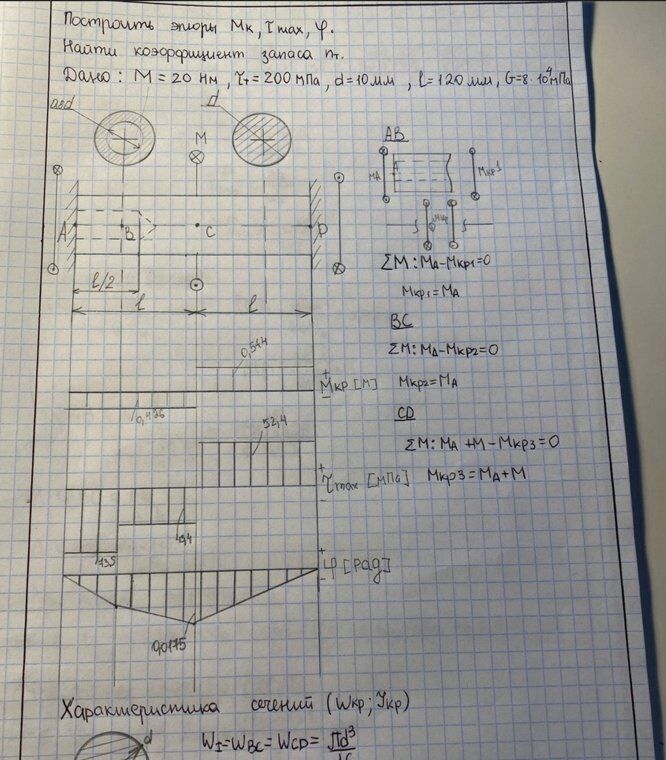 Построить эпюры Мк, τmax, φ.
Найти коэффициент запаса nт.
Дано: М = 20 Нм, τт = 200 МПа, d = 10 мм, l = 120 мм, G = 8·10⁴ МПа
d
M
A
B
C
D
l/2
l
l
AB
MA
Мкр1
ΣM: MA - Мкр1 = 0
Мкр1 = MA
BC
ΣM: MA - Мкр2 = 0
Мкр2 = MA
CD
ΣM: MA + M - Мкр3 = 0
Мкр3 = MA + M
+
Мкр [М]
-
52,4
+
τmax [МПа]
-
+
φ [рад]
-
0,0175
Характеристика сечений (Wкр; Jкр)
d
WI = WBC = WCD = πd³